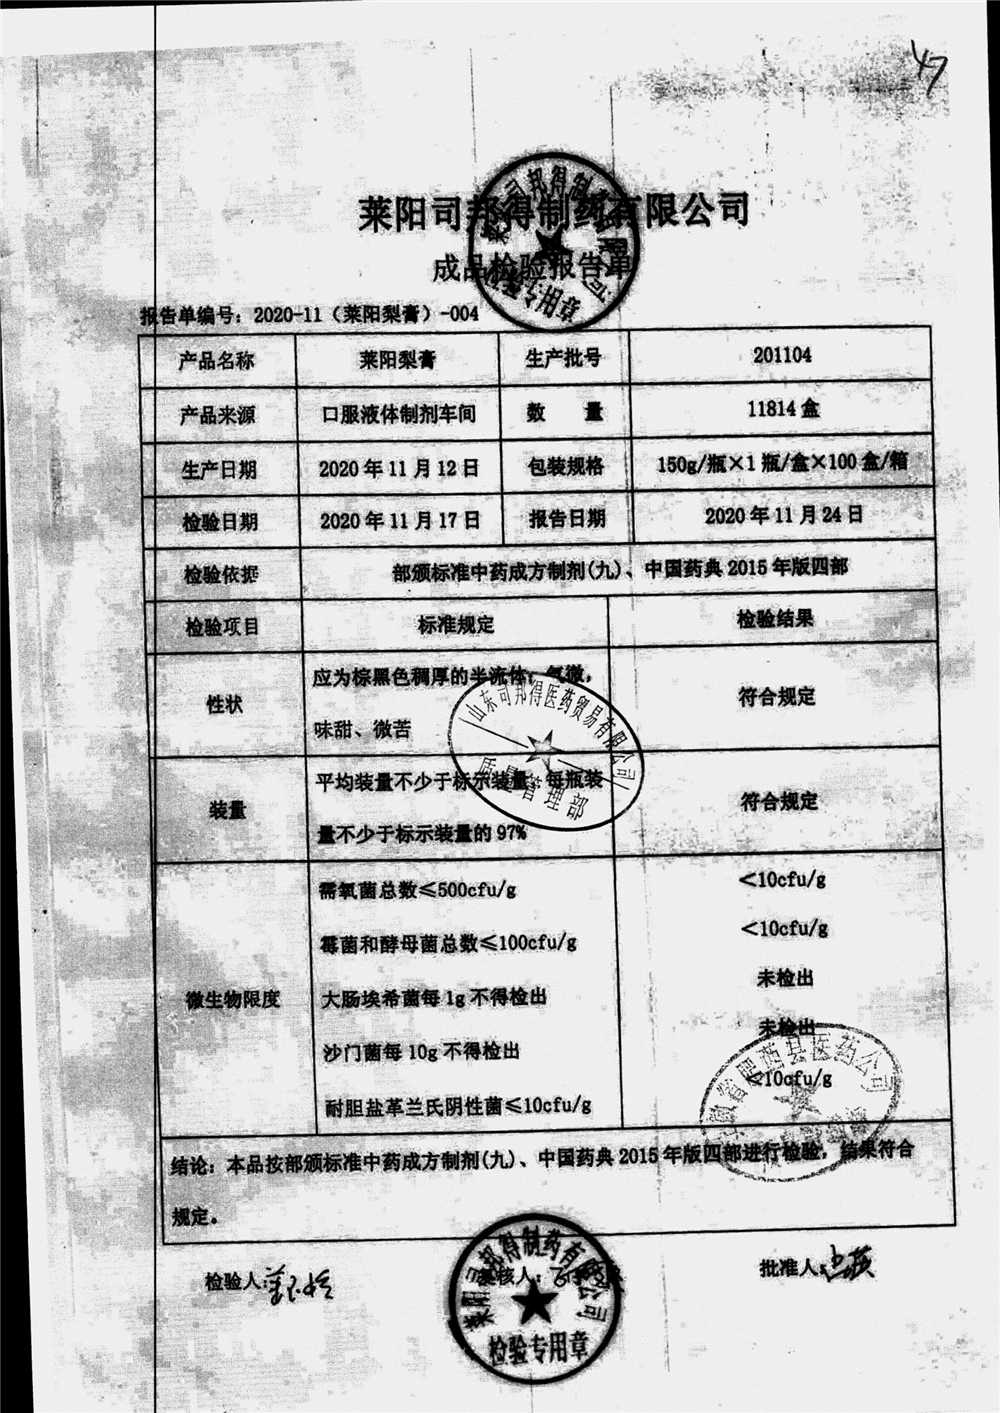 47
莱阳司邦得制药有限公司
成品检验报告单
报告单编号：2020-11（莱阳梨膏）-004
产品名称 莱阳梨膏 生产批号 201104
产品来源 口服液体制剂车间 数 量 11814盒
生产日期 2020年11月12日 包装规格 150g/瓶×1瓶/盒×100盒/箱
检验日期 2020年11月17日 报告日期 2020年11月24日
检验依据 部颁标准中药成方制剂(九)、中国药典2015年版四部
检验项目 标准规定 检验结果
性状 应为棕黑色稠厚的半流体；气微，
味甜、微苦 符合规定
装量 平均装量不少于标示装量，每瓶装
量不少于标示装量的97% 符合规定
微生物限度
需氧菌总数≤500cfu/g <10cfu/g
霉菌和酵母菌总数≤100cfu/g <10cfu/g
大肠埃希菌每1g不得检出 未检出
沙门菌每10g不得检出 未检出
耐胆盐革兰氏阴性菌≤10cfu/g <10cfu/g
结论：本品按部颁标准中药成方制剂(九)、中国药典2015年版四部进行检验，结果符合
规定。
检验人： 复核人： 批准人：
莱阳司邦得制药有限公司
检验专用章
山东司邦得医药贸易有限公司
质量管理部
安徽省肥西县医药公司
莱阳司邦得制药有限公司
检验专用章